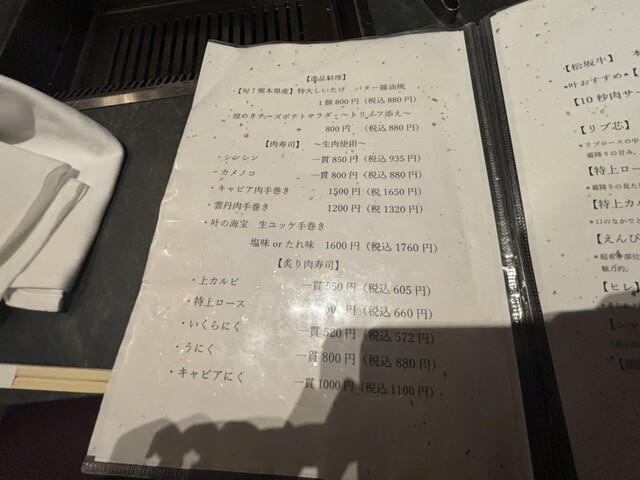 【逸品料理】
【旬!熊本県産】特大しいたけ バター醤油焼
1個 800円(税込 880円)
・煌めきチーズポテトサラダ・〜トリュフ添え〜
800円 (税込 880円)
【肉寿司】 〜生肉使用〜
・シンシン 一貫 850円 (税込 935円)
・カメノコ 一貫 800円 (税込 880円)
・キャビア肉手巻き 1500円 (税 1650円)
・雲丹肉手巻き 1200円 (税 1320円)
・叶の海宝 生ユッケ手巻き
塩味 or たれ味 1600円 (税込 1760円)
【炙り肉寿司】
・上カルビ 一貫 550円 (税込 605円)
・特上ロース 0円 (税込 660円)
・いくらにく 一貫 520円 (税込 572円)
・うにく 一貫 800円 (税込 880円)
・キャビアにく 一貫 1000円 (税込 1100円)
【松坂牛】
*叶おすすめ*
【10秒肉サー
【リブ芯】
*リブロースの中
霜降りの甘み。
【特上ロー
*霜降りの見た
【特上カル
*口のなかでと
【えんぴ
*超希少部位
魅力的。
【ヒレ】